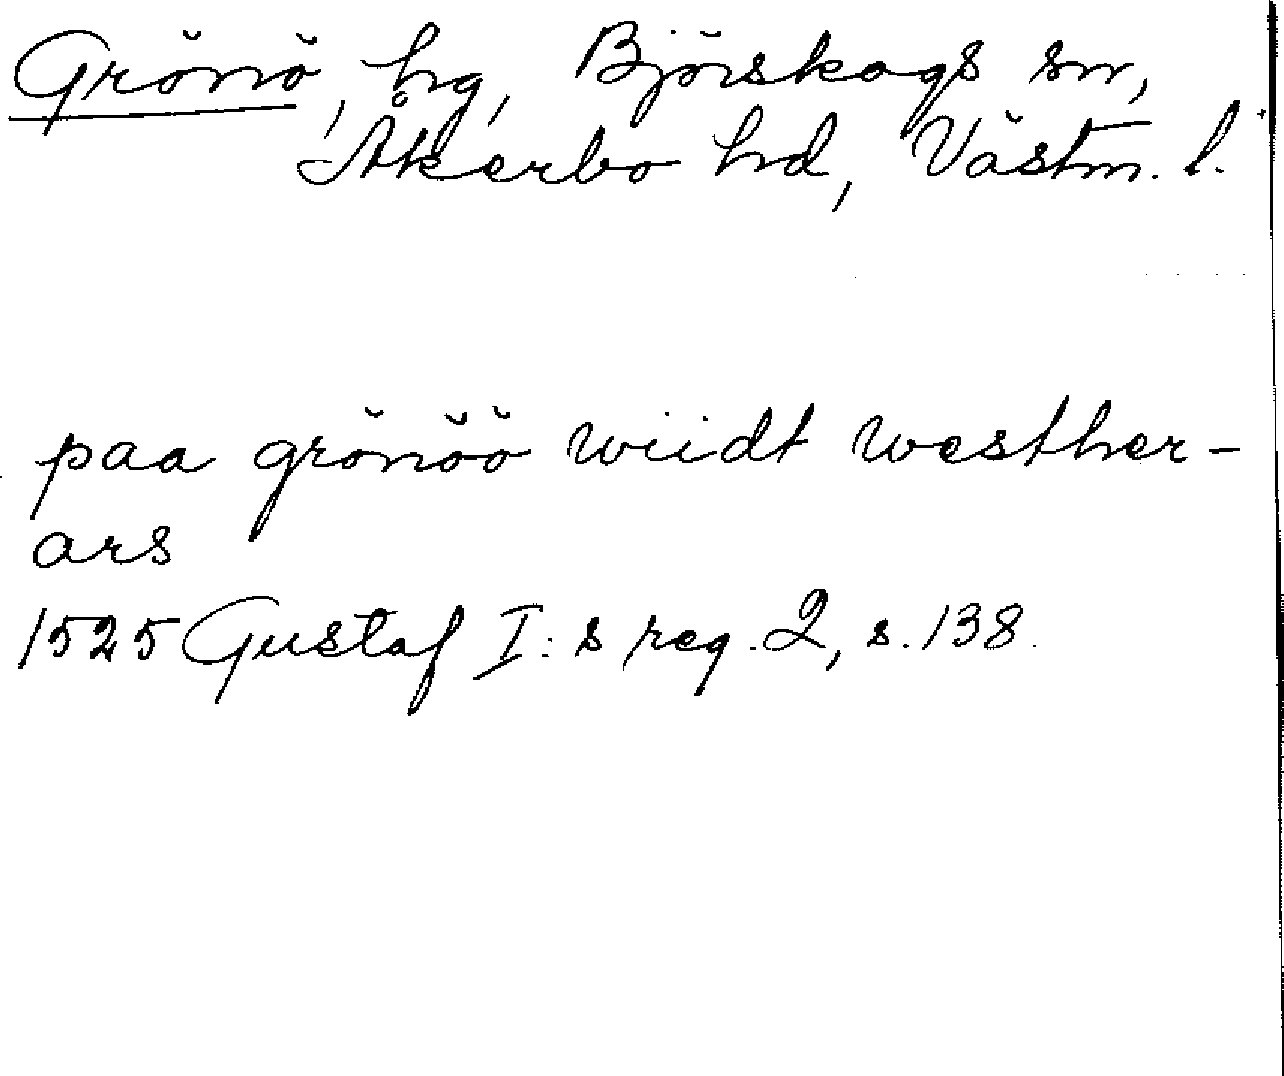 Grönö, hg, Björskogs sn,
Åkerbo hd, Västm. l.
paa grönöö wiidt westher-
ars
1525 Gustaf I:s reg. 2, s. 138.